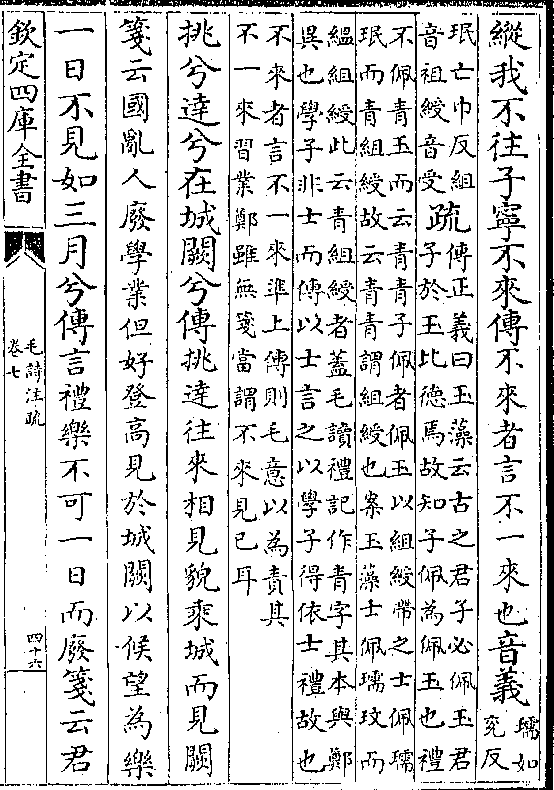 縱我不往子寧不來傳不來者言不一來也音義瓀如
兖反
珉亡巾反組
音祖綬音受
疏
傳正義曰玉藻云古之君子必佩玉君
子於玉比德焉故知子佩為佩玉也禮
不佩青玉而云青青子佩者佩玉以組綬帶之士佩瓀
珉而青組綬故云青青謂組綬也案玉藻士佩瓀玟而
緼組綬此云青組綬者蓋毛讀禮記作青字其本與鄭
異也學子非士而傳以士言之以學子得依士禮故也
不來者言不一來準上傳則毛意以為責其
不一來習業鄭雖無箋當謂不來見已耳
挑兮達兮在城闕兮傳挑達往來相見貌乘城而見闕
箋云國亂人廢學業但好登高見於城闕以候望為樂
一日不見如三月兮傳言禮樂不可一日而廢箋云君
欽定四庫全書
毛詩注疏
卷七
四十六